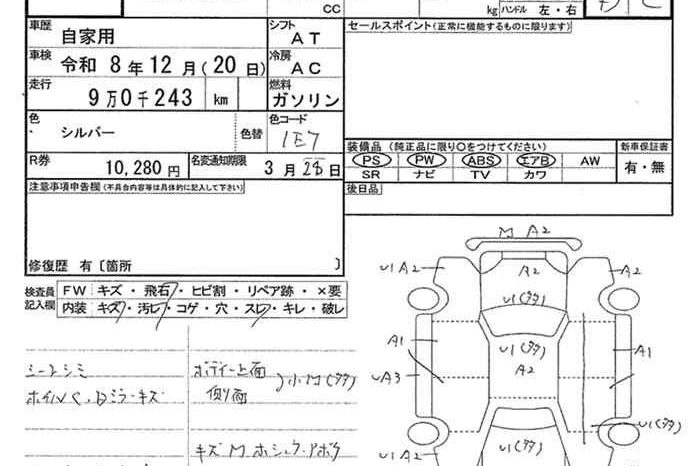 CC
kg ハンドル 左・右
車歴 自家用
シフト AT
セールスポイント(正常に機能するものに限ります)
車検 令和 8年 12月(20日)
冷房 AC
走行 9万0千243 km
燃料 ガソリン
色 シルバー 色替
色コード 1E7
装備品(純正品に限り○をつけてください)
新車保証書
PS PW ABS エアB AW
有・無
SR ナビ TV カワ
R券 10,280円
名変通知期限 3月28日
後日品
注意事項申告欄(不具合内容等は具体的に記入して下さい)
修復歴 有〔箇所 〕
検査員記入欄
FW キズ・飛石・ヒビ割・リペア跡・×要
内装 キズ・汚レ・コゲ・穴・スレ・キレ・破レ
M A2
U1 A2
A2
A2
U1(タタ)
A1
U1(タタ)
A1
A2
UA3
シートシミ
ボディー上面
側面
小凹(タタ)
U1(タタ)
U1 A2
U1(タタ)